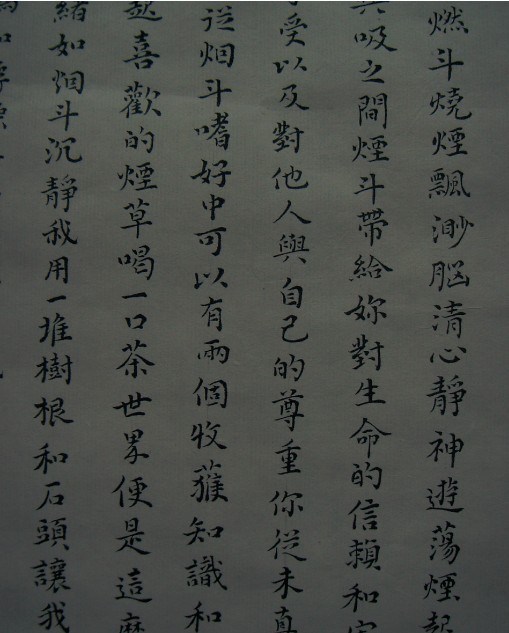 燃斗燒煙飄渺腦清心靜神遊蕩煙起
與吸之間煙斗帶給妳對生命的信賴和
受以及對他人與自己的尊重你從未真
从烟斗嗜好中可以有兩個收獲知識和
起喜歡的煙草喝一口茶世界便是這麼
緒如烟斗沉靜我用一堆樹根和石頭讓我